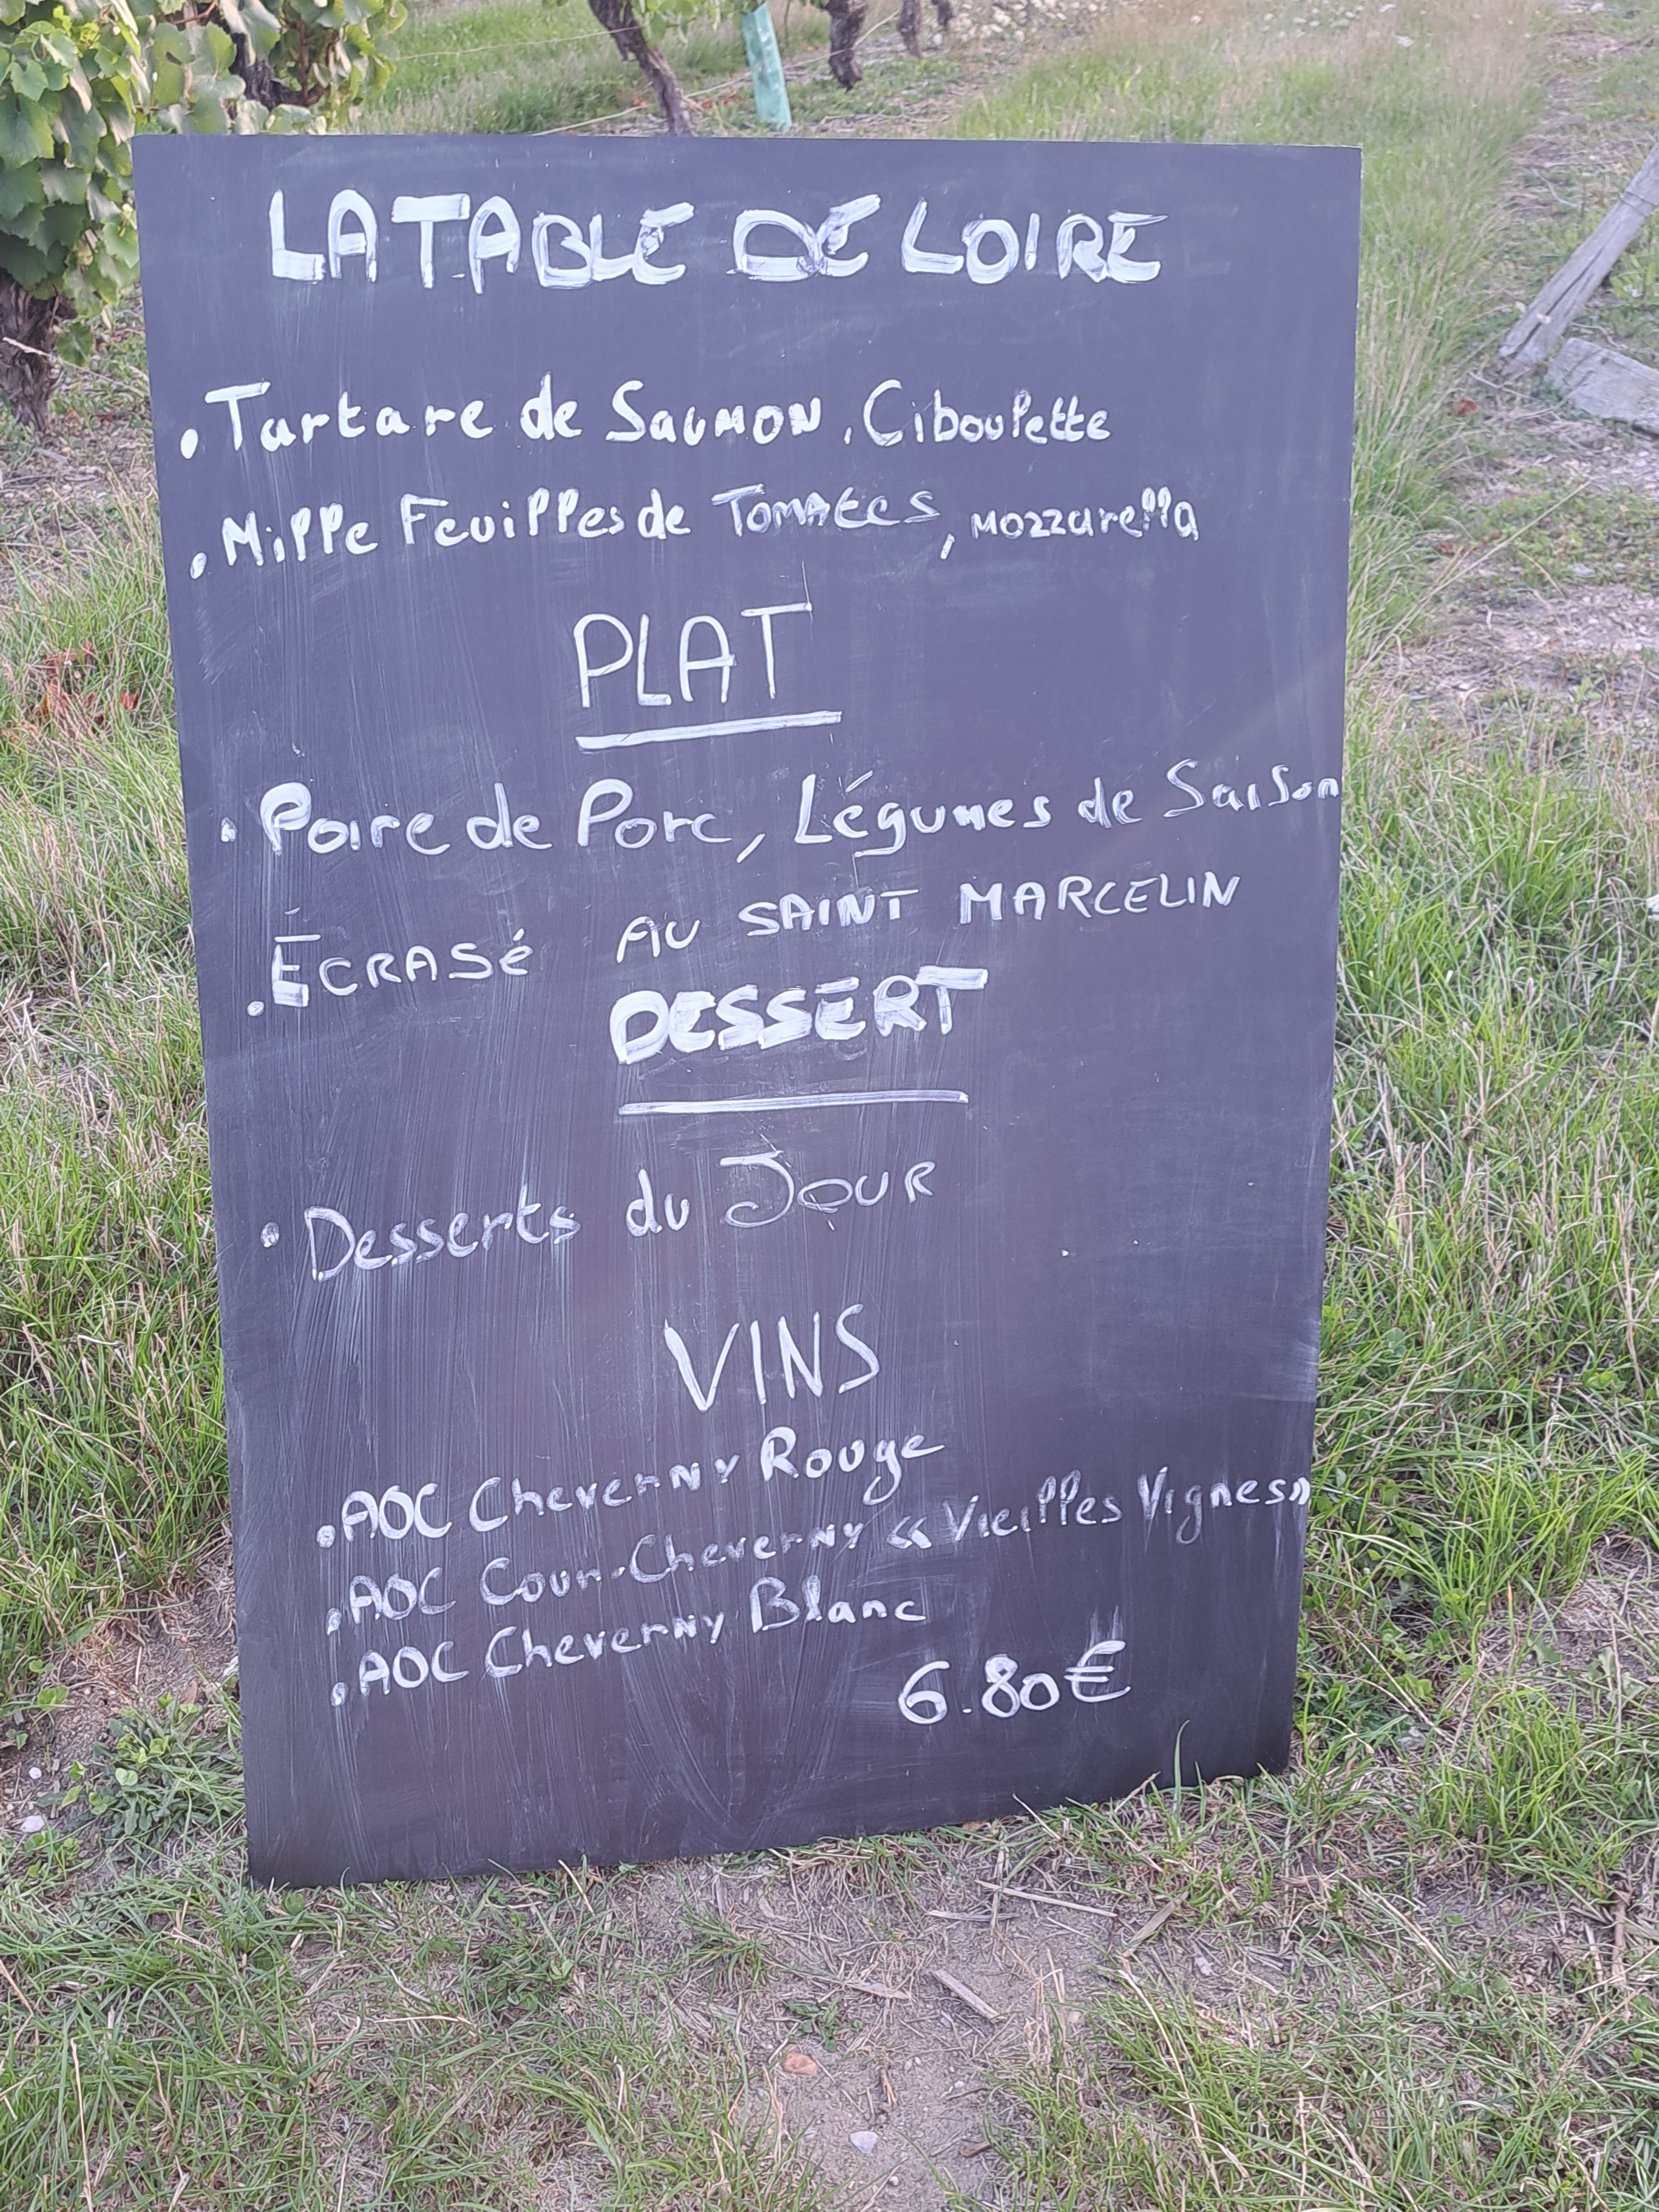 LA TABLE DE LOIRE
. Tartare de SAUMON, Ciboulette
. Mille Feuilles de TOMATES, MOZZarella
PLAT
. Poire de Porc, Légumes de Saison
. ÉCRASé AU SAINT MARCELIN
DESSERT
. Desserts du JOUR
VINS
. AOC CheverNY Rouge
. AOC Cour-CheverNY « Vieilles Vignes »
. AOC CheverNY Blanc
6.80€